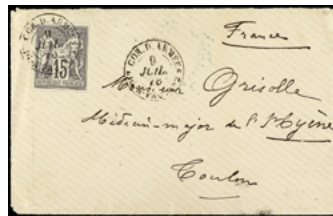 COR. D. ARMÉES
9
JUIL.
15
COR. D. ARMÉES
9
JUIL.
France
Monsieur Grisolle
Médecin-major de l'
Toulon